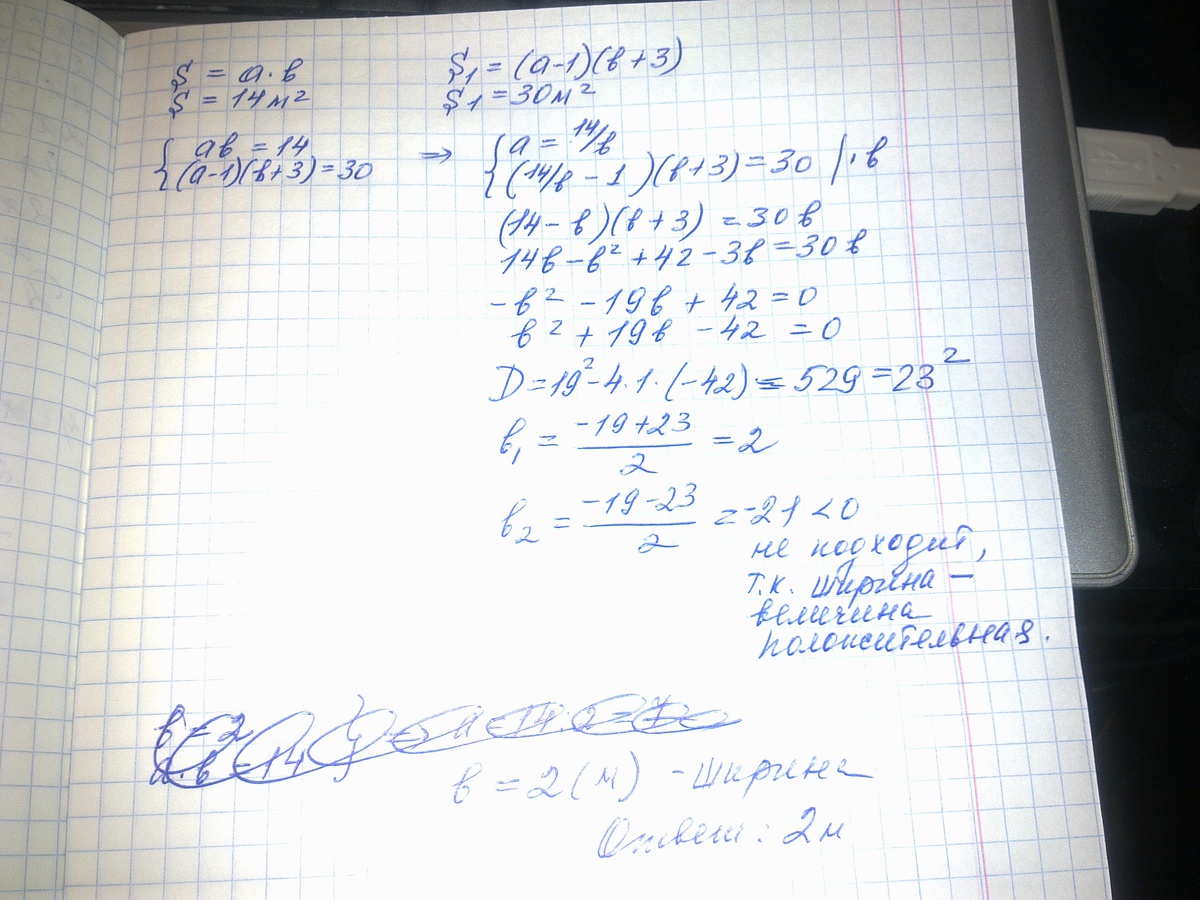 S = a·b S₁ = (a-1)(b+3)
S = 14м² S₁ = 30м²
{ ab = 14 ⇒ { a = 14/b
(a-1)(b+3) = 30 (14/b - 1)(b+3) = 30 | ·b
(14 - b)(b+3) = 30b
14b - b² + 42 - 3b = 30b
-b² - 19b + 42 = 0
b² + 19b - 42 = 0
D = 19² - 4·1·(-42) = 529 = 23²
b₁ = (-19+23)/2 = 2
b₂ = (-19-23)/2 = -21 < 0
не подходит,
т.к. ширина –
величина
положительная.
b = 2
a·b = 14 } ⇒ a = 14:2 = 7
b = 2(м) - ширина
Ответ: 2м